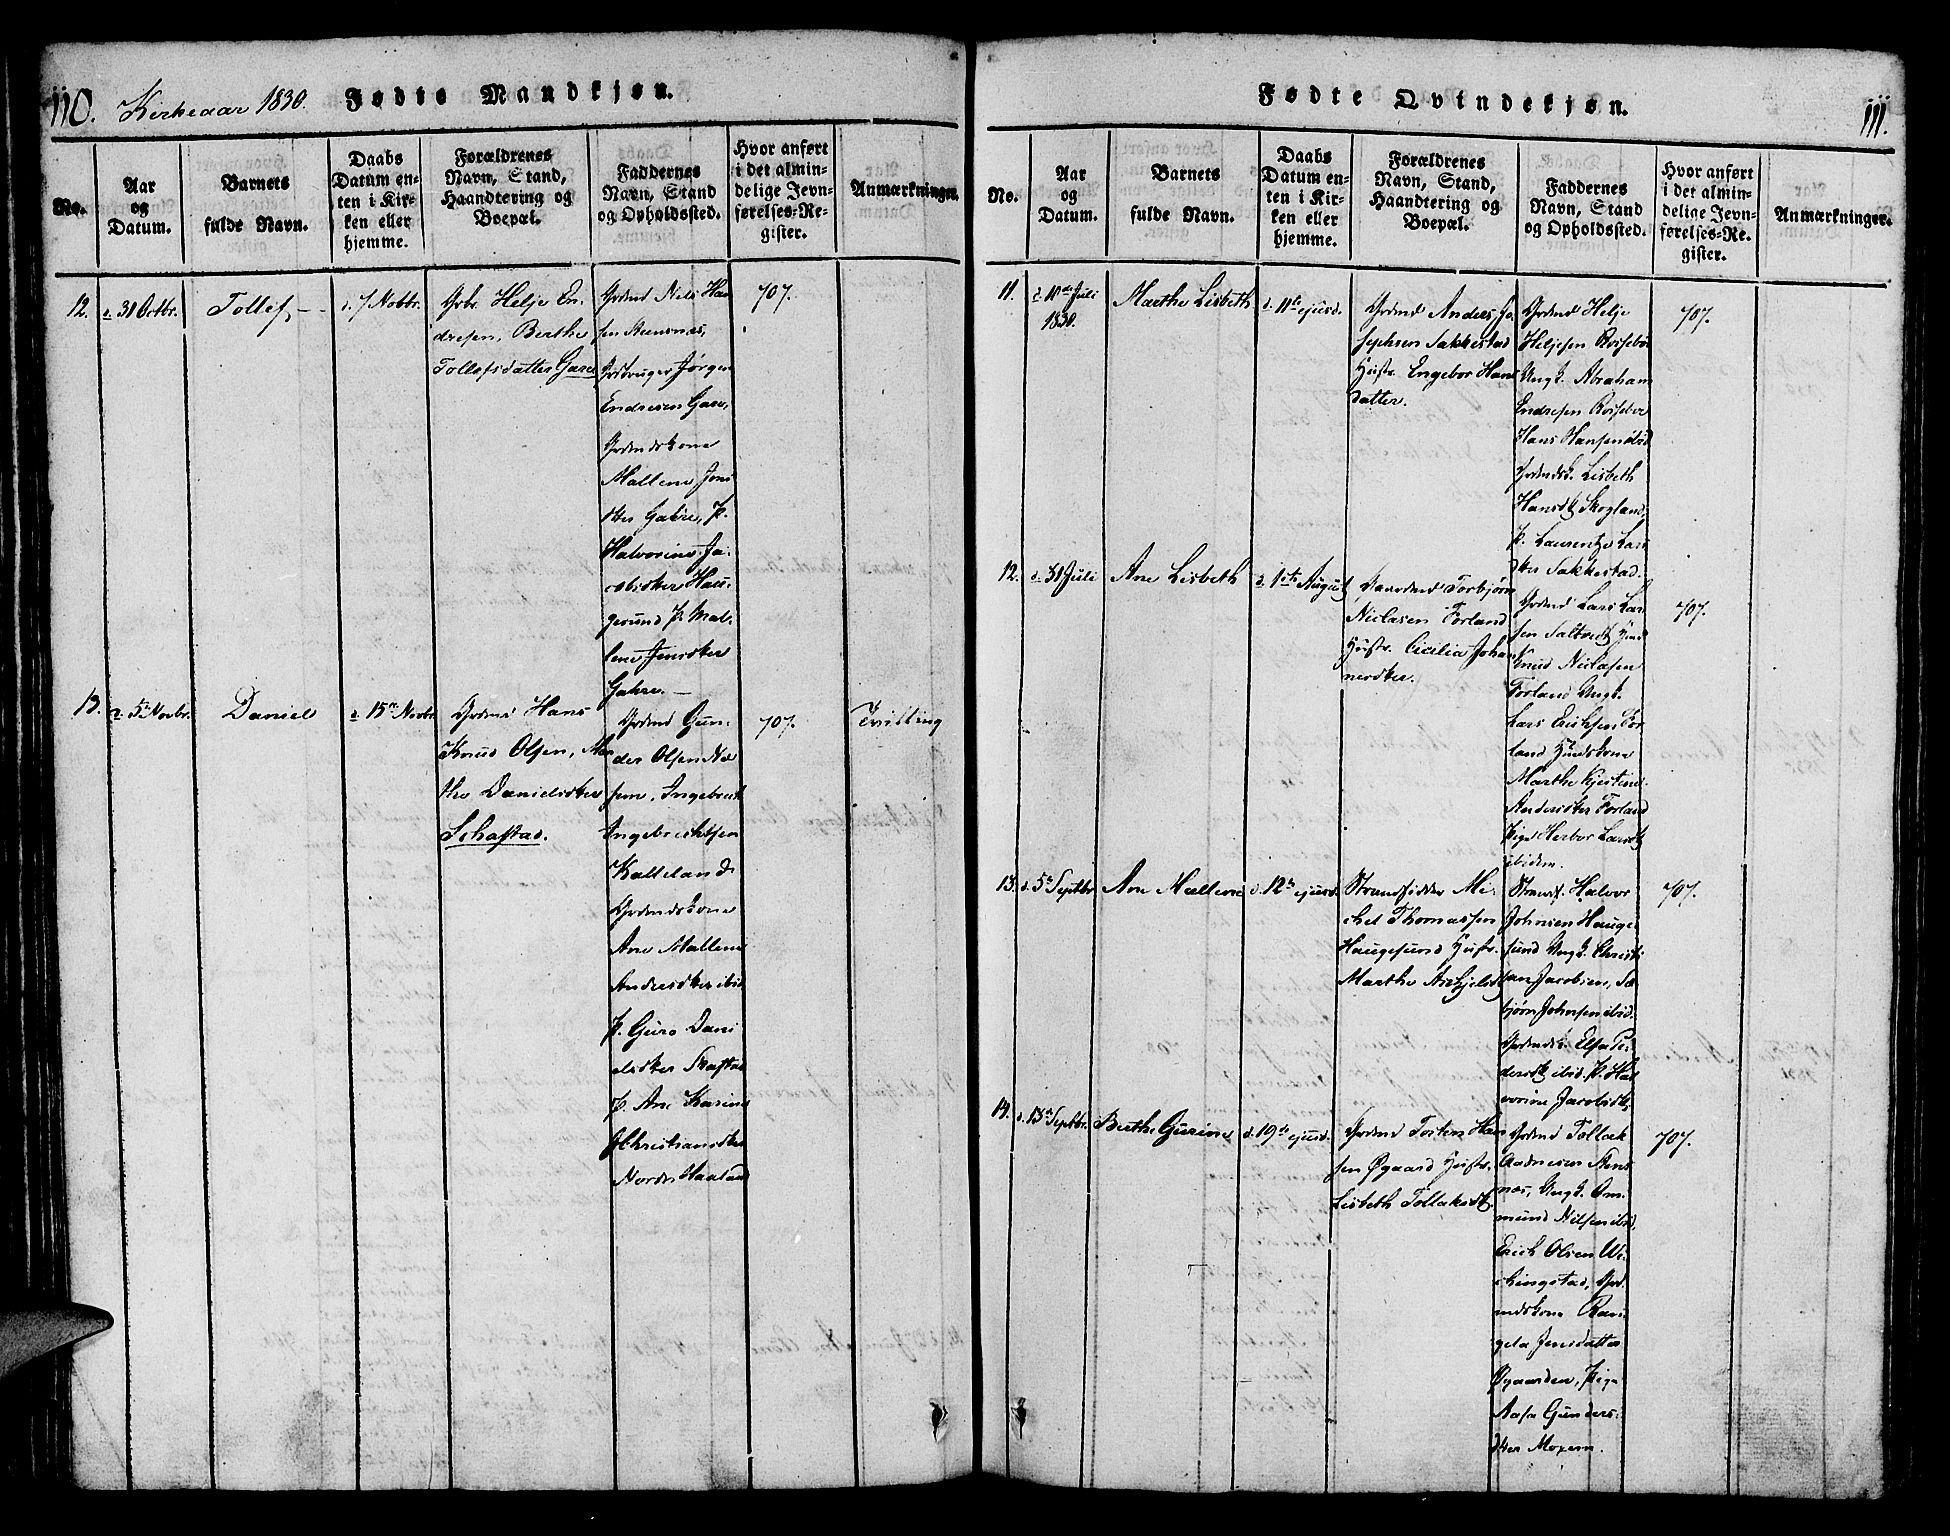 110. Kirkeaar 1830. Fødte Mandkjøn.
No.
Aar
og
Datum.
Barnets
fulde Navn.
Daabs
Datum en-
ten i Kir-
ken eller
hjemme.
Forældrenes
Navn, Stand,
Haandtering og
Boepæl.
Faddernes
Navn, Stand
og Opholdssted.
Hvor anført
i det almin-
delige Jevn-
førelses-Re-
gister.
Anmærkninger.
12.
d. 31 Octbr.
Tollef,
d. 7 Novbr.
Grbr. Helje En-
dresen, Berthe
Tollefsdatter Gare
Grdmd Niels Han
sen
Grdbruger Jørgen
Endresen Gare,
Grdmdskone
Mallene Jens
dtter Gahre, P.
Halvorine Ja-
cobsdter Hau-
gesund P. Mal-
lene Jensdter
Gahre.
707.
13.
d. 5te Novbr.
Daniel
d. 15de Novbr
Grdmd Hans
Knud Olsen, Mar
the Danielsdter
Schastad.
Grdmd Gun-
der Olsen Næ
sem, Ingebreth
Ingebrethsen
Kalleland
Grdmdskone
Ane Mallene
Andersdter ibid
P. Guro Dani
elsdter Skastad
P. Ane Karine
Christiansdter
Nordre Haaland
707.
Tvilling
Fødte Qvindekjøn. 111.
No.
Aar
og
Datum.
Barnets
fulde Navn.
Daabs
Datum en-
ten i Kir-
ken eller
hjemme.
Forældrenes
Navn, Stand,
Haandtering og
Boepæl.
Faddernes
Navn, Stand
og Opholdssted.
Hvor anført
i det almin-
delige Jevn-
førelses-Re-
gister.
Anmærkninger.
11.
d. 10de Juli
1830.
Marthe Lisbeth
d. 11te ejusd.
Grdmd Anders Jo
sephsen Sakkestad
Hustr. Engebor Hans
datter.
Grdmd Helje
Heljesen Røssebøe
Ungk. Abraham
Endresen Røssebøe
Hans Hansen ibid
Grdmdsk. Lisbeth
Hansdt Skogland,
P. Laurentze Lars
dter Sakkestad.
707.
12.
d. 31 Juli
Ane Lisbeth
d. 1ste August
Torbjørn
Niclasen Førland
Hustr. Cicilia Johan
nesdter.
Grdmd Lars Lar
sen Saltvedt
Knud Niclasen
Førland Ungk.
Lars Erichsen Før-
land Huusdkone
Marthe Kjestine
Andersdter Førland
Pige Herbor Larsdt
ibidem.
707.
13.
d. 5te Septbr
Ane Mallene
d. 12te ejusd.
Strandsidder Mi-
chel Thomassen
Haugesund Hustr.
Marthe Askjelsdt
Strandst. Halvor
Johnsen Hauge
sund Ungk. Christi
an Jacobsen,
bjørn Johnsen ibid.
Grdmdsk. Elsa Pe
dersdt ibid. P. Hal
vorine Jacobsdt,
707.
14.
d. 13de Septbr.
Berthe Gurine
d. 19de ejusd.
Grdmd Torsten Han
sen Øgaard Hustr.
Lisbeth Tollaksdt
Grdmd Tollak
Aadnesen Stens
næs, Ungk. Om-
mund Nilsen ibid.
Erich Olsen Wi-
chingstad, Grd
mdskone Ran
gela Jensdatter
Øgaarden, Pige
Aasa Gunders-
dter Moxem.
707.